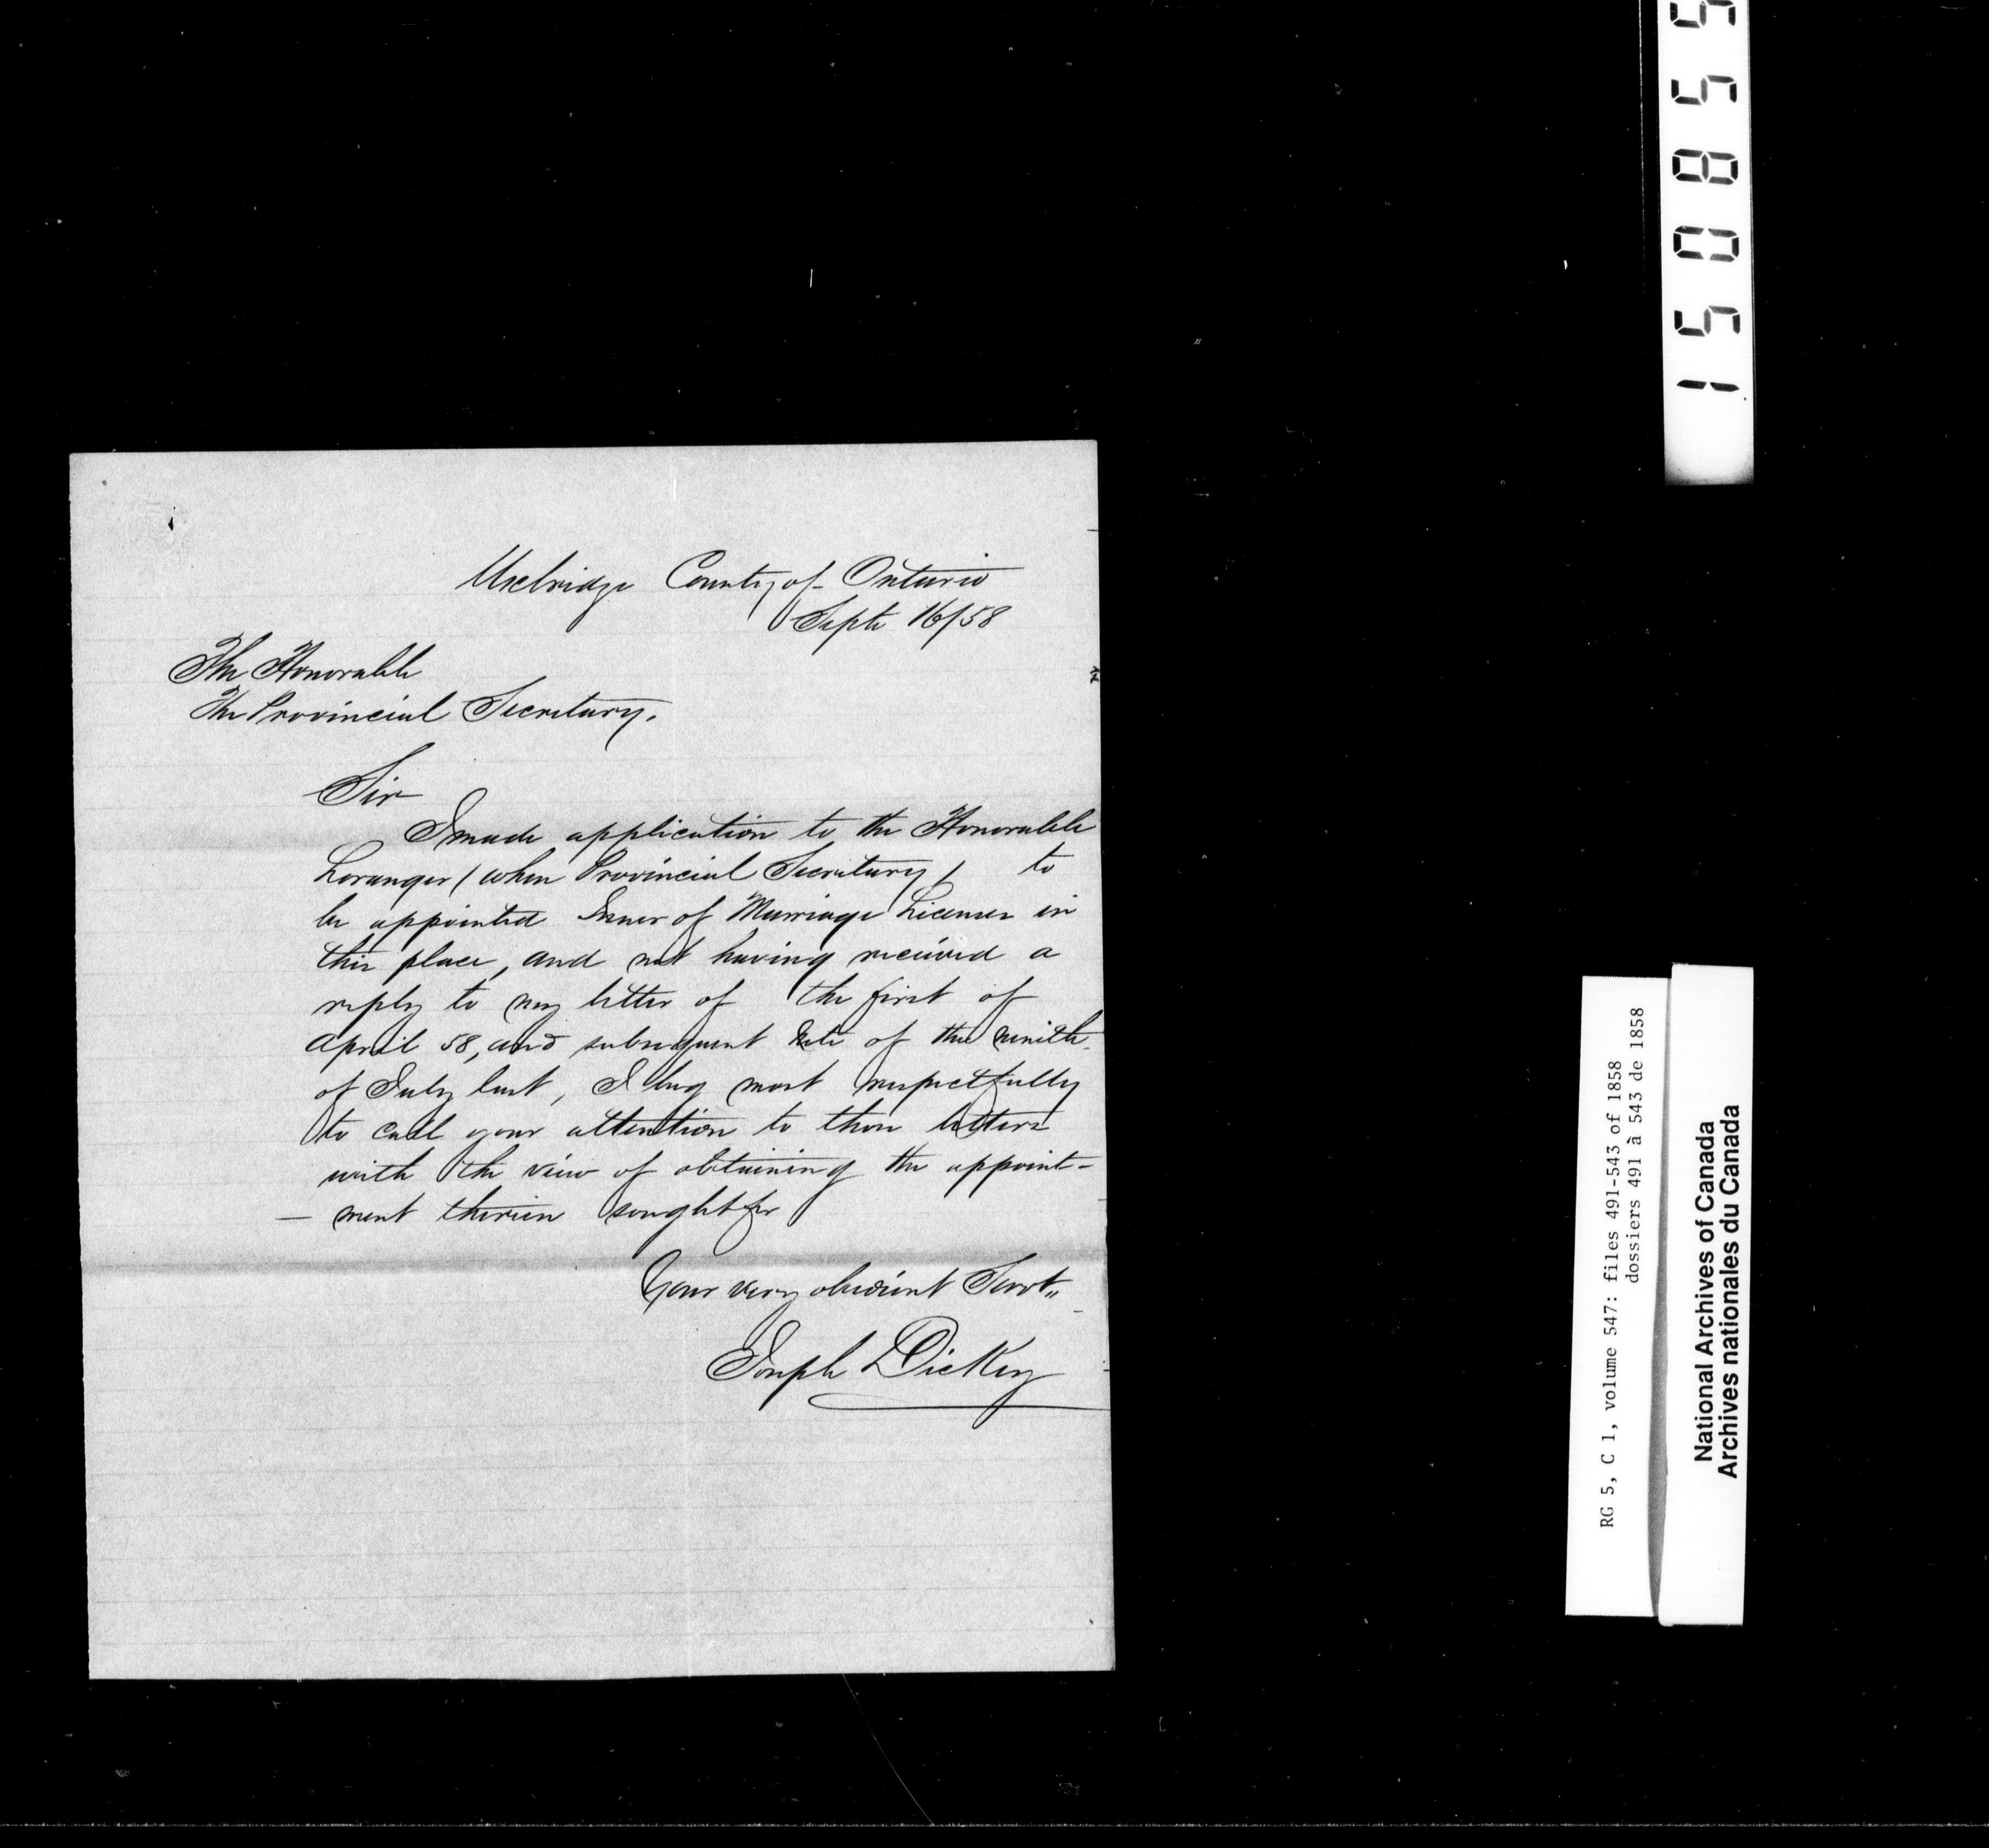 Uxbridge County of Ontario
Septr 16/58
The Honorable
The Provincial Secretary.
Sir
I made application to the Honorable
Loranger (when Provincial Secretary) to
be appointed Issuer of Marriage Licenses in
this place, and not having received a
reply to my letter of the first of
April 58, and subsequent date of the ninith
of July last, I beg most respectfully
to call your attention to those letters
with the view of obtaining the appoint-
- ment therein sought for
Your very obedient Servt,,
Joseph Dickey
150855
RG 5, C 1, volume 547: files 491-543 of 1858
dossiers 491 à 543 de 1858
National Archives of Canada
Archives nationales du Canada